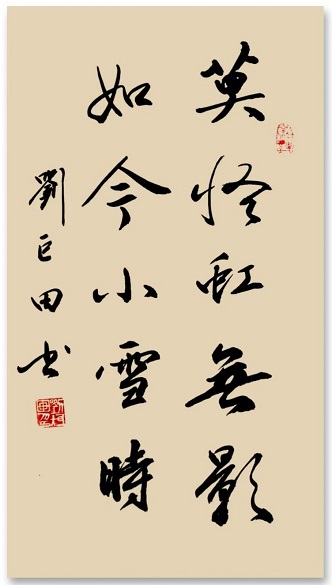 莫怪虹無影
如今小雪時
劉巨田书